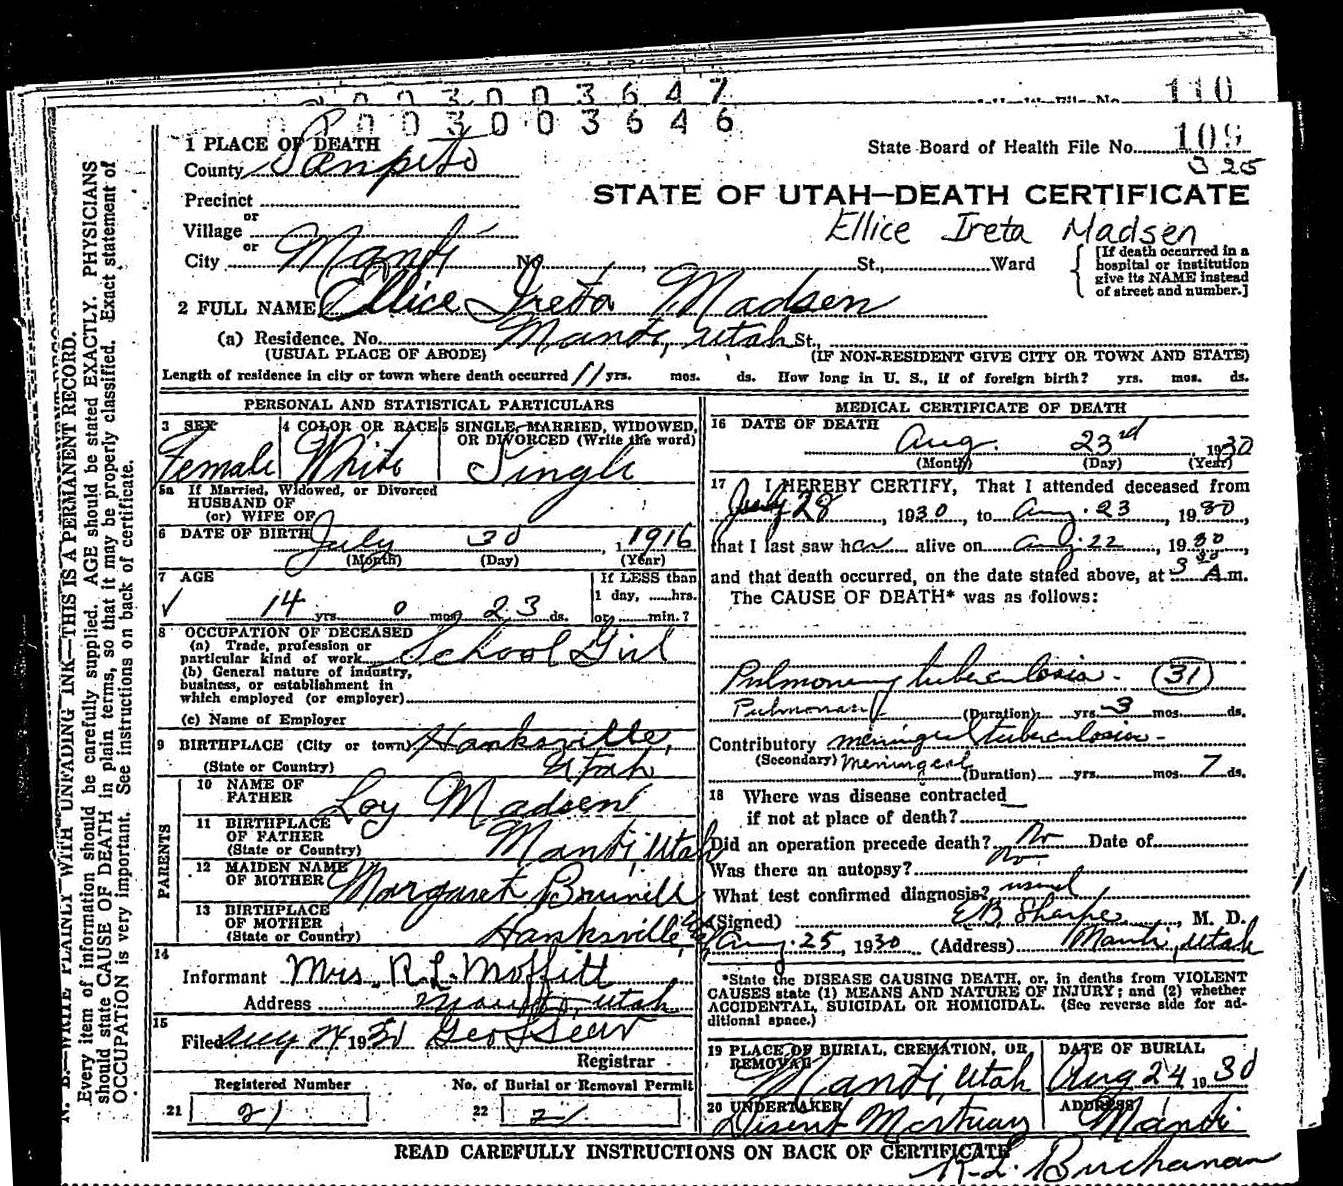 3 0 0 3 6 4 7
110
0 0 3 0 0 3 6 4 6
1 PLACE OF DEATH
State Board of Health File No. 109
325
County Sanpete
STATE OF UTAH—DEATH CERTIFICATE
Precinct
or
Village
Ellice Ireta Madsen
or
City Manti No. , St., Ward
[If death occurred in a hospital or institution give its NAME instead of street and number.]
2 FULL NAME Ellice Ireta Madsen
(a) Residence. No. Manti, Utah St.,
(USUAL PLACE OF ABODE) (IF NON-RESIDENT GIVE CITY OR TOWN AND STATE)
Length of residence in city or town where death occurred 11 yrs. mos. ds. How long in U. S., if of foreign birth? yrs. mos. ds.
PERSONAL AND STATISTICAL PARTICULARS
3 SEX
Female
4 COLOR OR RACE
White
5 SINGLE, MARRIED, WIDOWED, OR DIVORCED (Write the word)
Single
5a If Married, Widowed, or Divorced
HUSBAND OF
(or) WIFE OF
6 DATE OF BIRTH July 30, 1916
(Month) (Day) (Year)
7 AGE
14 yrs. 0 mos. 23 ds.
If LESS than
1 day, hrs.
or min.?
8 OCCUPATION OF DECEASED
(a) Trade, profession or
particular kind of work School Girl
(b) General nature of industry,
business, or establishment in
which employed (or employer)
(c) Name of Employer
9 BIRTHPLACE (City or town) Hanksville,
(State or Country) Utah
PARENTS
10 NAME OF
FATHER Loy Madsen
11 BIRTHPLACE
OF FATHER
(State or Country) Manti, Utah
12 MAIDEN NAME
OF MOTHER Margaret
13 BIRTHPLACE
OF MOTHER
(State or Country) Hanksville,
14
Informant Mrs. R. L. Moffitt
Address Utah
15
Filed Aug 24 1930
Registrar
Registered Number
21 21
No. of Burial or Removal Permit
22 21
MEDICAL CERTIFICATE OF DEATH
16 DATE OF DEATH
Aug. 23rd 1930
(Month) (Day) (Year)
17 I HEREBY CERTIFY, That I attended deceased from
July 28, 1930, to Aug. 23, 1930,
that I last saw her alive on Aug. 22, 1930,
and that death occurred, on the date stated above, at 3 30 A.m.
The CAUSE OF DEATH* was as follows:
Pulmonary tuberculosis. (31)
Pulmonary (Duration) yrs. 3 mos. ds.
Contributory meningeal tuberculosis -
(Secondary) Meningeal
(Duration) yrs. mos. 7 ds.
18 Where was disease contracted
if not at place of death?
Did an operation precede death? No Date of
Was there an autopsy? No
What test confirmed diagnosis? usual
(Signed) E.B. Sharpe, M. D.
Aug. 25, 1930 (Address) Manti, Utah
*State the DISEASE CAUSING DEATH, or, in deaths from VIOLENT
CAUSES state (1) MEANS AND NATURE OF INJURY; and (2) whether
ACCIDENTAL, SUICIDAL OR HOMICIDAL. (See reverse side for ad-
ditional space.)
19 PLACE OF BURIAL, CREMATION, OR
REMOVAL
Manti, Utah
DATE OF BURIAL
Aug 24 1930
20 UNDERTAKER
Mortuary
ADDRESS
Manti
READ CAREFULLY INSTRUCTIONS ON BACK OF CERTIFICATE
R. L. Buchanan
N. B.—WRITE PLAINLY WITH UNFADING INK—THIS IS A PERMANENT RECORD.
Every item of information should be carefully supplied. AGE should be stated EXACTLY. PHYSICIANS
should state CAUSE OF DEATH in plain terms, so that it may be properly classified. Exact statement of
OCCUPATION is very important. See instructions on back of certificate.